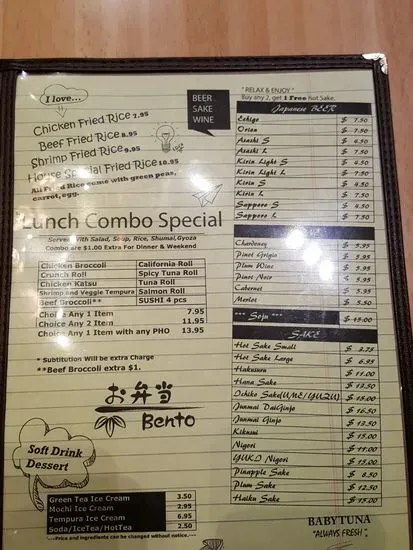 I love...
Chicken Fried Rice 7.95
Beef Fried Rice 8.95
Shrimp Fried Rice 9.95
House Special Fried Rice 10.95
All Fried Rice come with green peas,
carrot, egg.
BEER
SAKE
WINE
Lunch Combo Special
Served With Salad, Soup, Rice, Shumai,Gyoza
Combo are $1.00 Extra For Dinner & Weekend
Chicken Broccoli California Roll
Crunch Roll Spicy Tuna Roll
Chicken Katsu Tuna Roll
Shrimp and Veggie Tempura Salmon Roll
Beef Broccoli** SUSHI 4 pcs
Choice Any 1 Item 7.95
Choice Any 2 Item 11.95
Choice Any 1 Item with any PHO 13.95
* Subtitution Will be extra Charge
**Beef Broccoli extra $1.
お弁当
Bento
Soft Drink
Dessert
Green Tea Ice Cream 3.50
Mochi Ice Cream 2.95
Tempura Ice Cream 6.95
Soda/IceTea/HotTea 2.50
---Price and ingredients can be changed without notice.---
" RELAX & ENJOY "
Buy any 2, get 1 Free hot Sake.
Japanese BEER
Echigo $ 7.50
Orion $ 7.50
Asashi S $ 4.50
Asashi L $ 7.50
Kirin Light S $ 4.50
Kirin Light L $ 7.50
Kirin S $ 4.50
Kirin L $ 7.50
Sapporo S $ 4.50
Sapporo L $ 7.50
Chardoney $ 5.95
Pinot Grigio $ 5.95
Plum Wine $ 5.95
Pinot Noir $ 5.95
Cabernet $ 5.95
Merlot $ 5.50
*** Soju *** $ 15.00
SAKE
Hot Sake Small $ 3.75
Hot Sake Large $ 6.95
Hakusuru $ 11.00
Hana Sake $ 13.50
Ichiko Sake(UME/YUZU) $ 15.00
Junmai DaiGinjo $ 16.50
Junmai Ginjo $ 13.50
Kikusui $ 15.00
Nigori $ 11.00
YUKI Nigori $ 15.00
Pinapple Sake $ 8.50
Plum Sake $ 12.50
Haiku Sake $ 15.00
BABYTUNA
"ALWAYS FRESH"